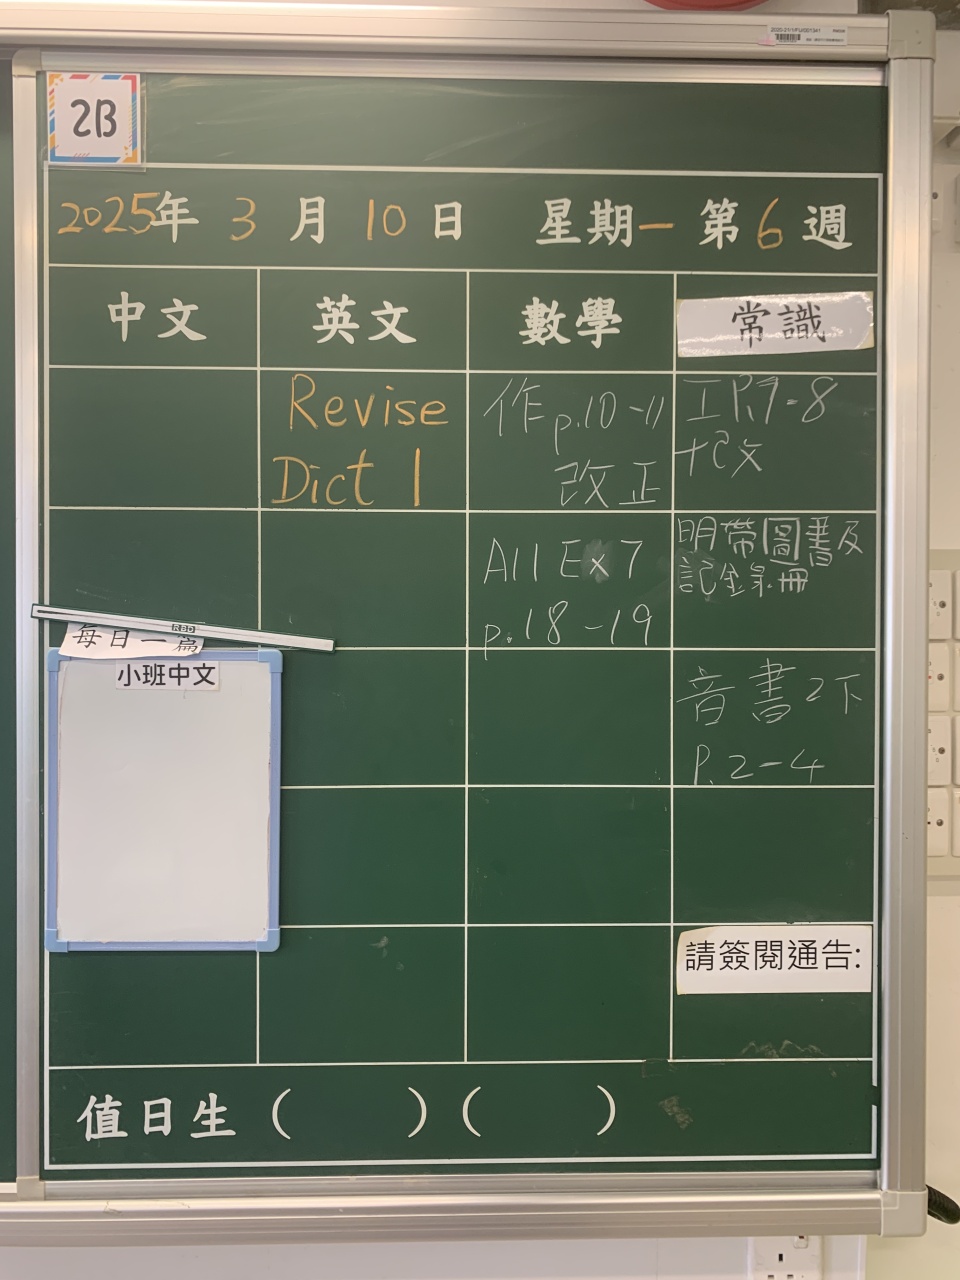 2B
2025年 3 月 10 日 星期一 第 6 週
中文 英文 數學 常識
Revise
Dict 1
作 p.10-11
改正
工 P.7-8
十 改
All Ex 7
p.18-19
明帶圖書及
記錄冊
每日一篇
小班中文
音書2下
P.2-4
請簽閱通告:
值日生 ( ) ( )